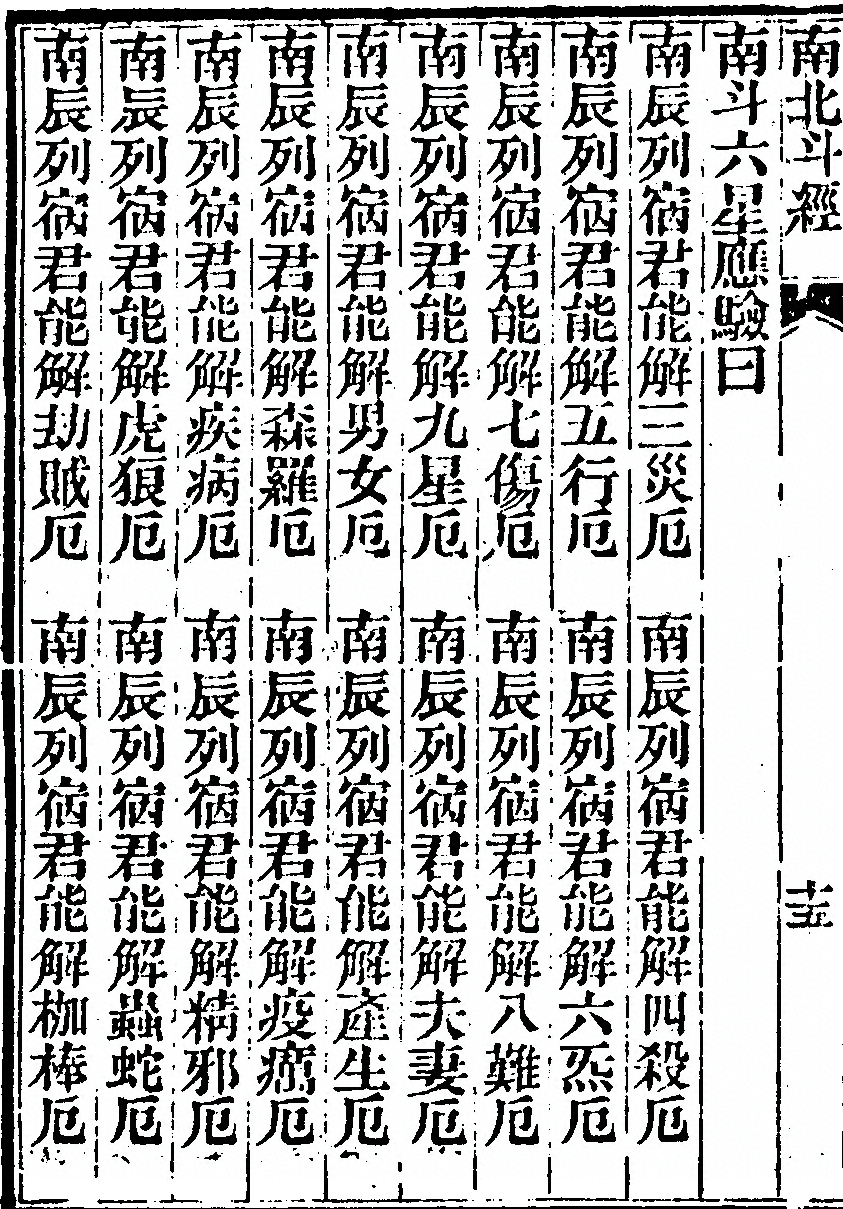 南北斗經 十五
南斗六星應驗曰
南辰列宿君能解三災厄 南辰列宿君能解四殺厄
南辰列宿君能解五行厄 南辰列宿君能解六炁厄
南辰列宿君能解七傷厄 南辰列宿君能解八難厄
南辰列宿君能解九星厄 南辰列宿君能解夫妻厄
南辰列宿君能解男女厄 南辰列宿君能解產生厄
南辰列宿君能解森羅厄 南辰列宿君能解疫癘厄
南辰列宿君能解疾病厄 南辰列宿君能解精邪厄
南辰列宿君能解虎狼厄 南辰列宿君能解蟲蛇厄
南辰列宿君能解劫賊厄 南辰列宿君能解枷棒厄